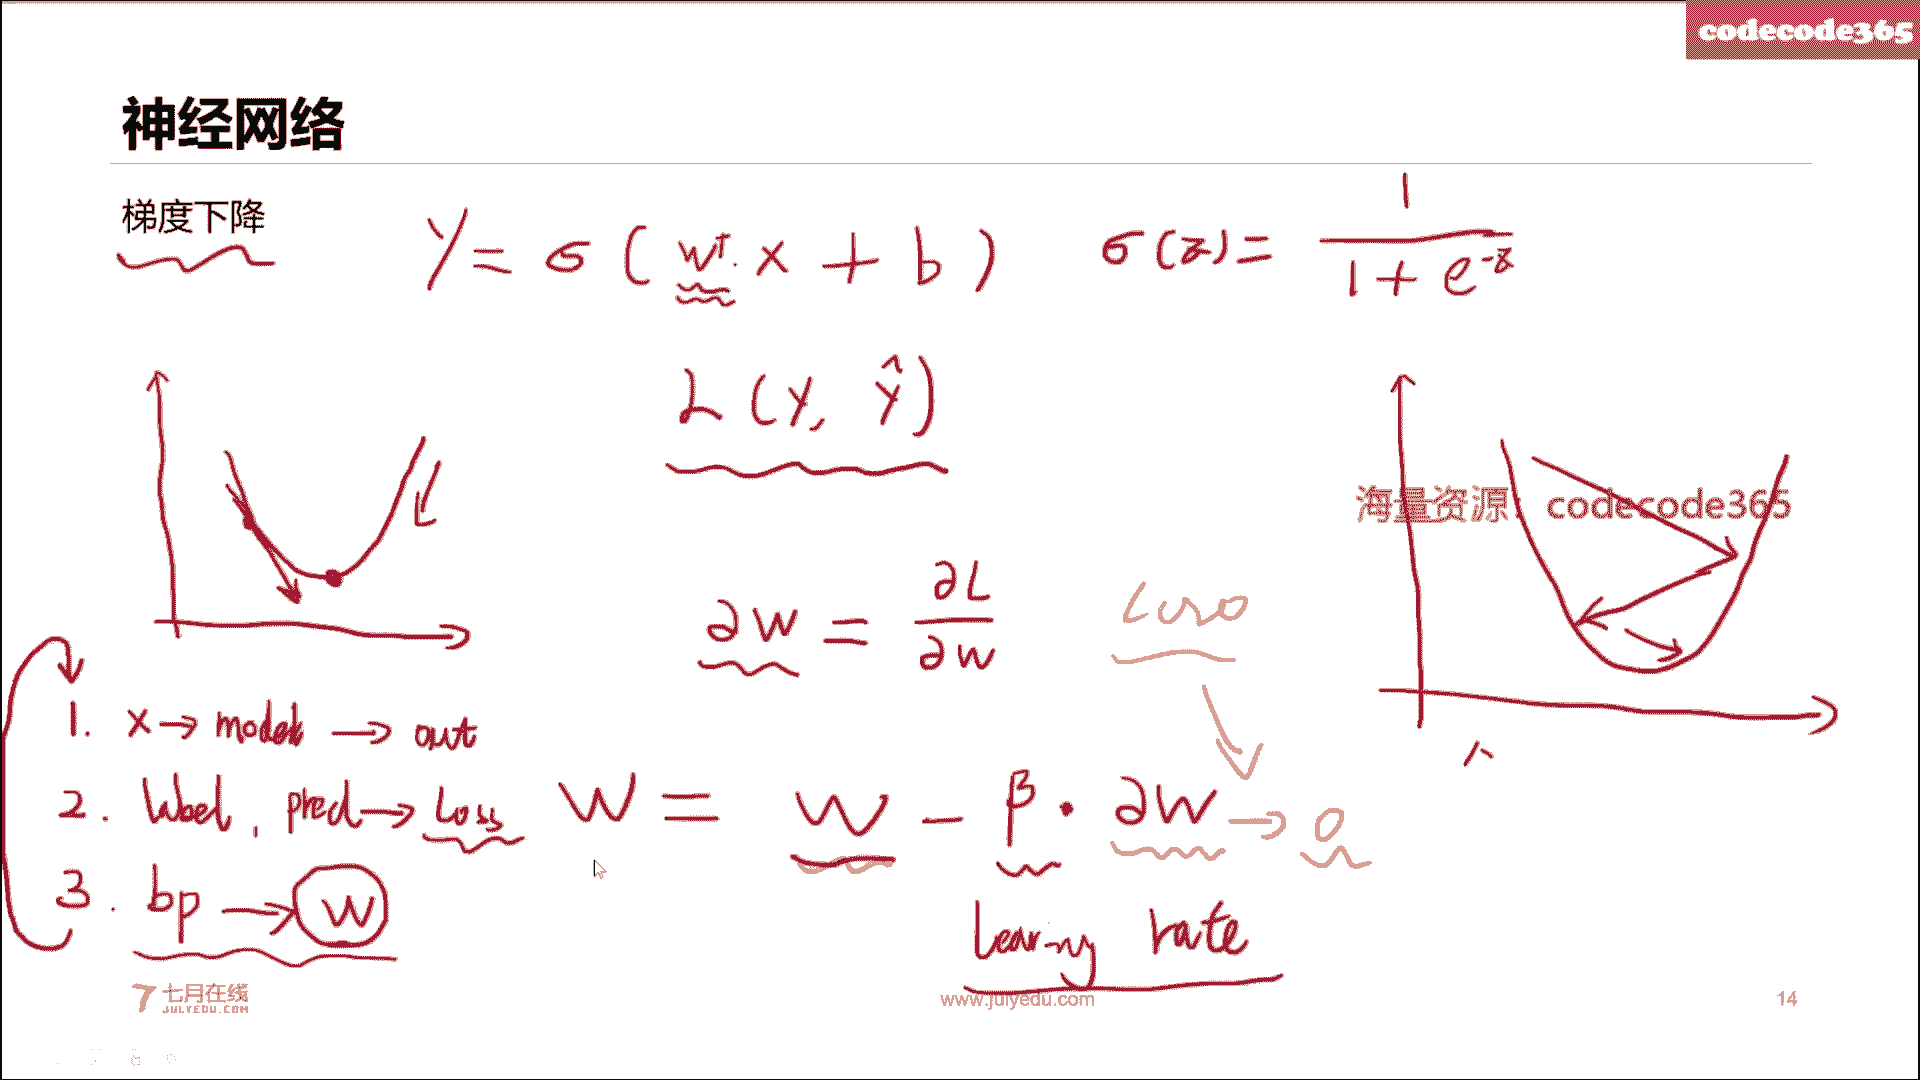 codecode365
神经网络
梯度下降
y = σ ( wᵀ. x + b )
σ(z) = 1 / (1 + e^-z)
L (y, ŷ)
海量资源: codecode365
∂w = ∂L / ∂w
Loss
1. x → model → out
2. label, pred → Loss
w = w - β · ∂w → 0
3. bp → w
learning rate
七月在线
JULYEDU.COM
www.julyedu.com
14